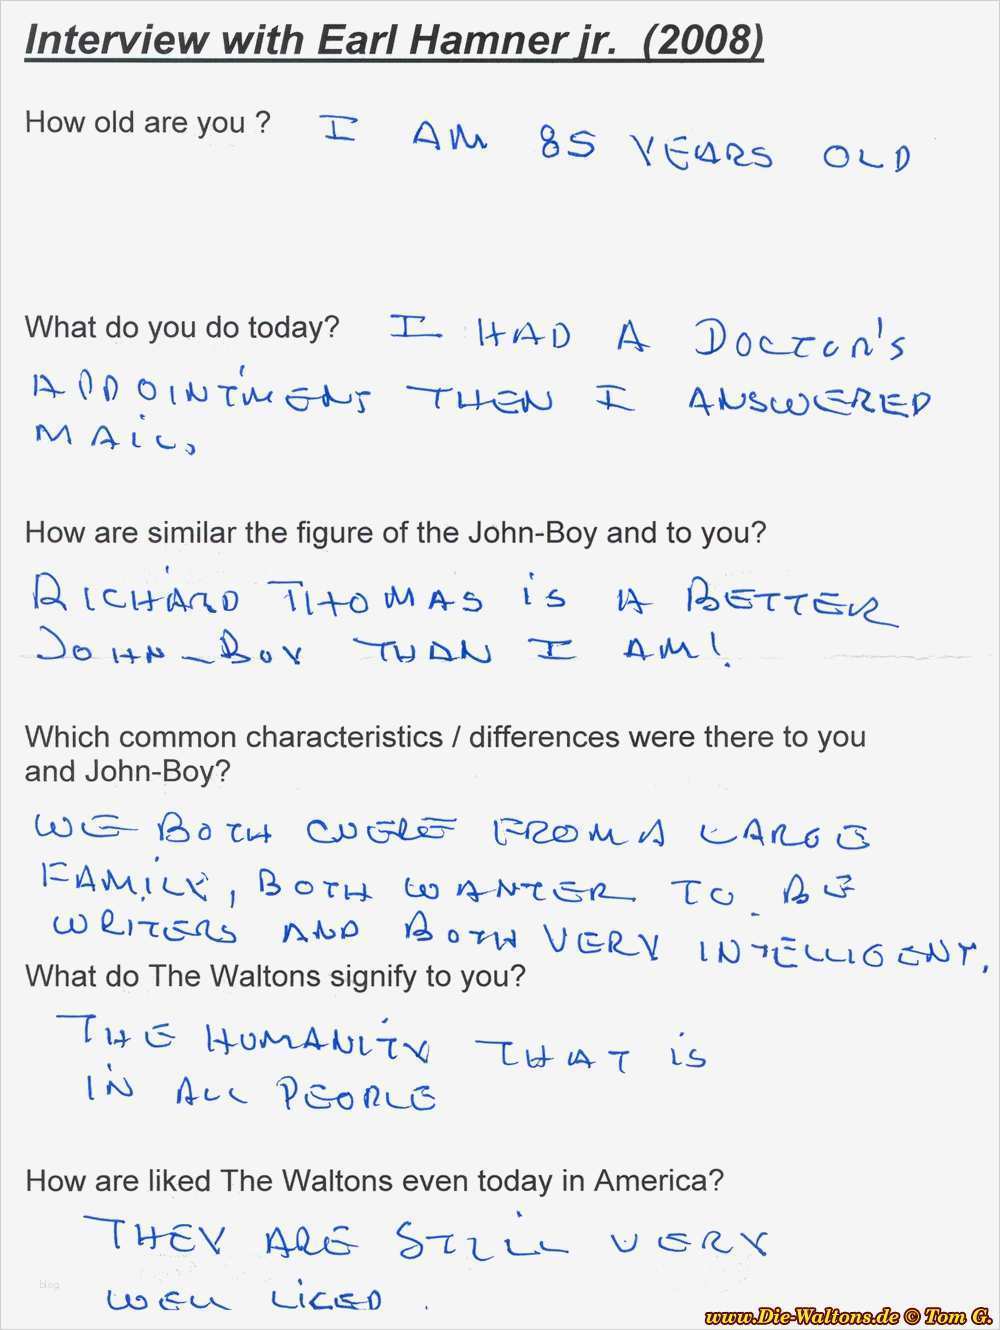 Interview with Earl Hamner jr. (2008)
How old are you ? I AM 85 YEARS OLD
What do you do today? I HAD A DOCTOR'S
APPOINTMENT THEN I ANSWERED
MAIL.
How are similar the figure of the John-Boy and to you?
RICHARD THOMAS IS A BETTER
JOHN-BOY THAN I AM!
Which common characteristics / differences were there to you
and John-Boy?
WE BOTH WERE FROM A LARGE
FAMILY, BOTH WANTED TO BE
WRITERS AND BOTH VERY INTELLIGENT.
What do The Waltons signify to you?
THE HUMANITY THAT IS
IN ALL PEOPLE
How are liked The Waltons even today in America?
THEY ARE STILL VERY
WELL LIKED.
blog
www.Die-Waltons.de © Tom G.